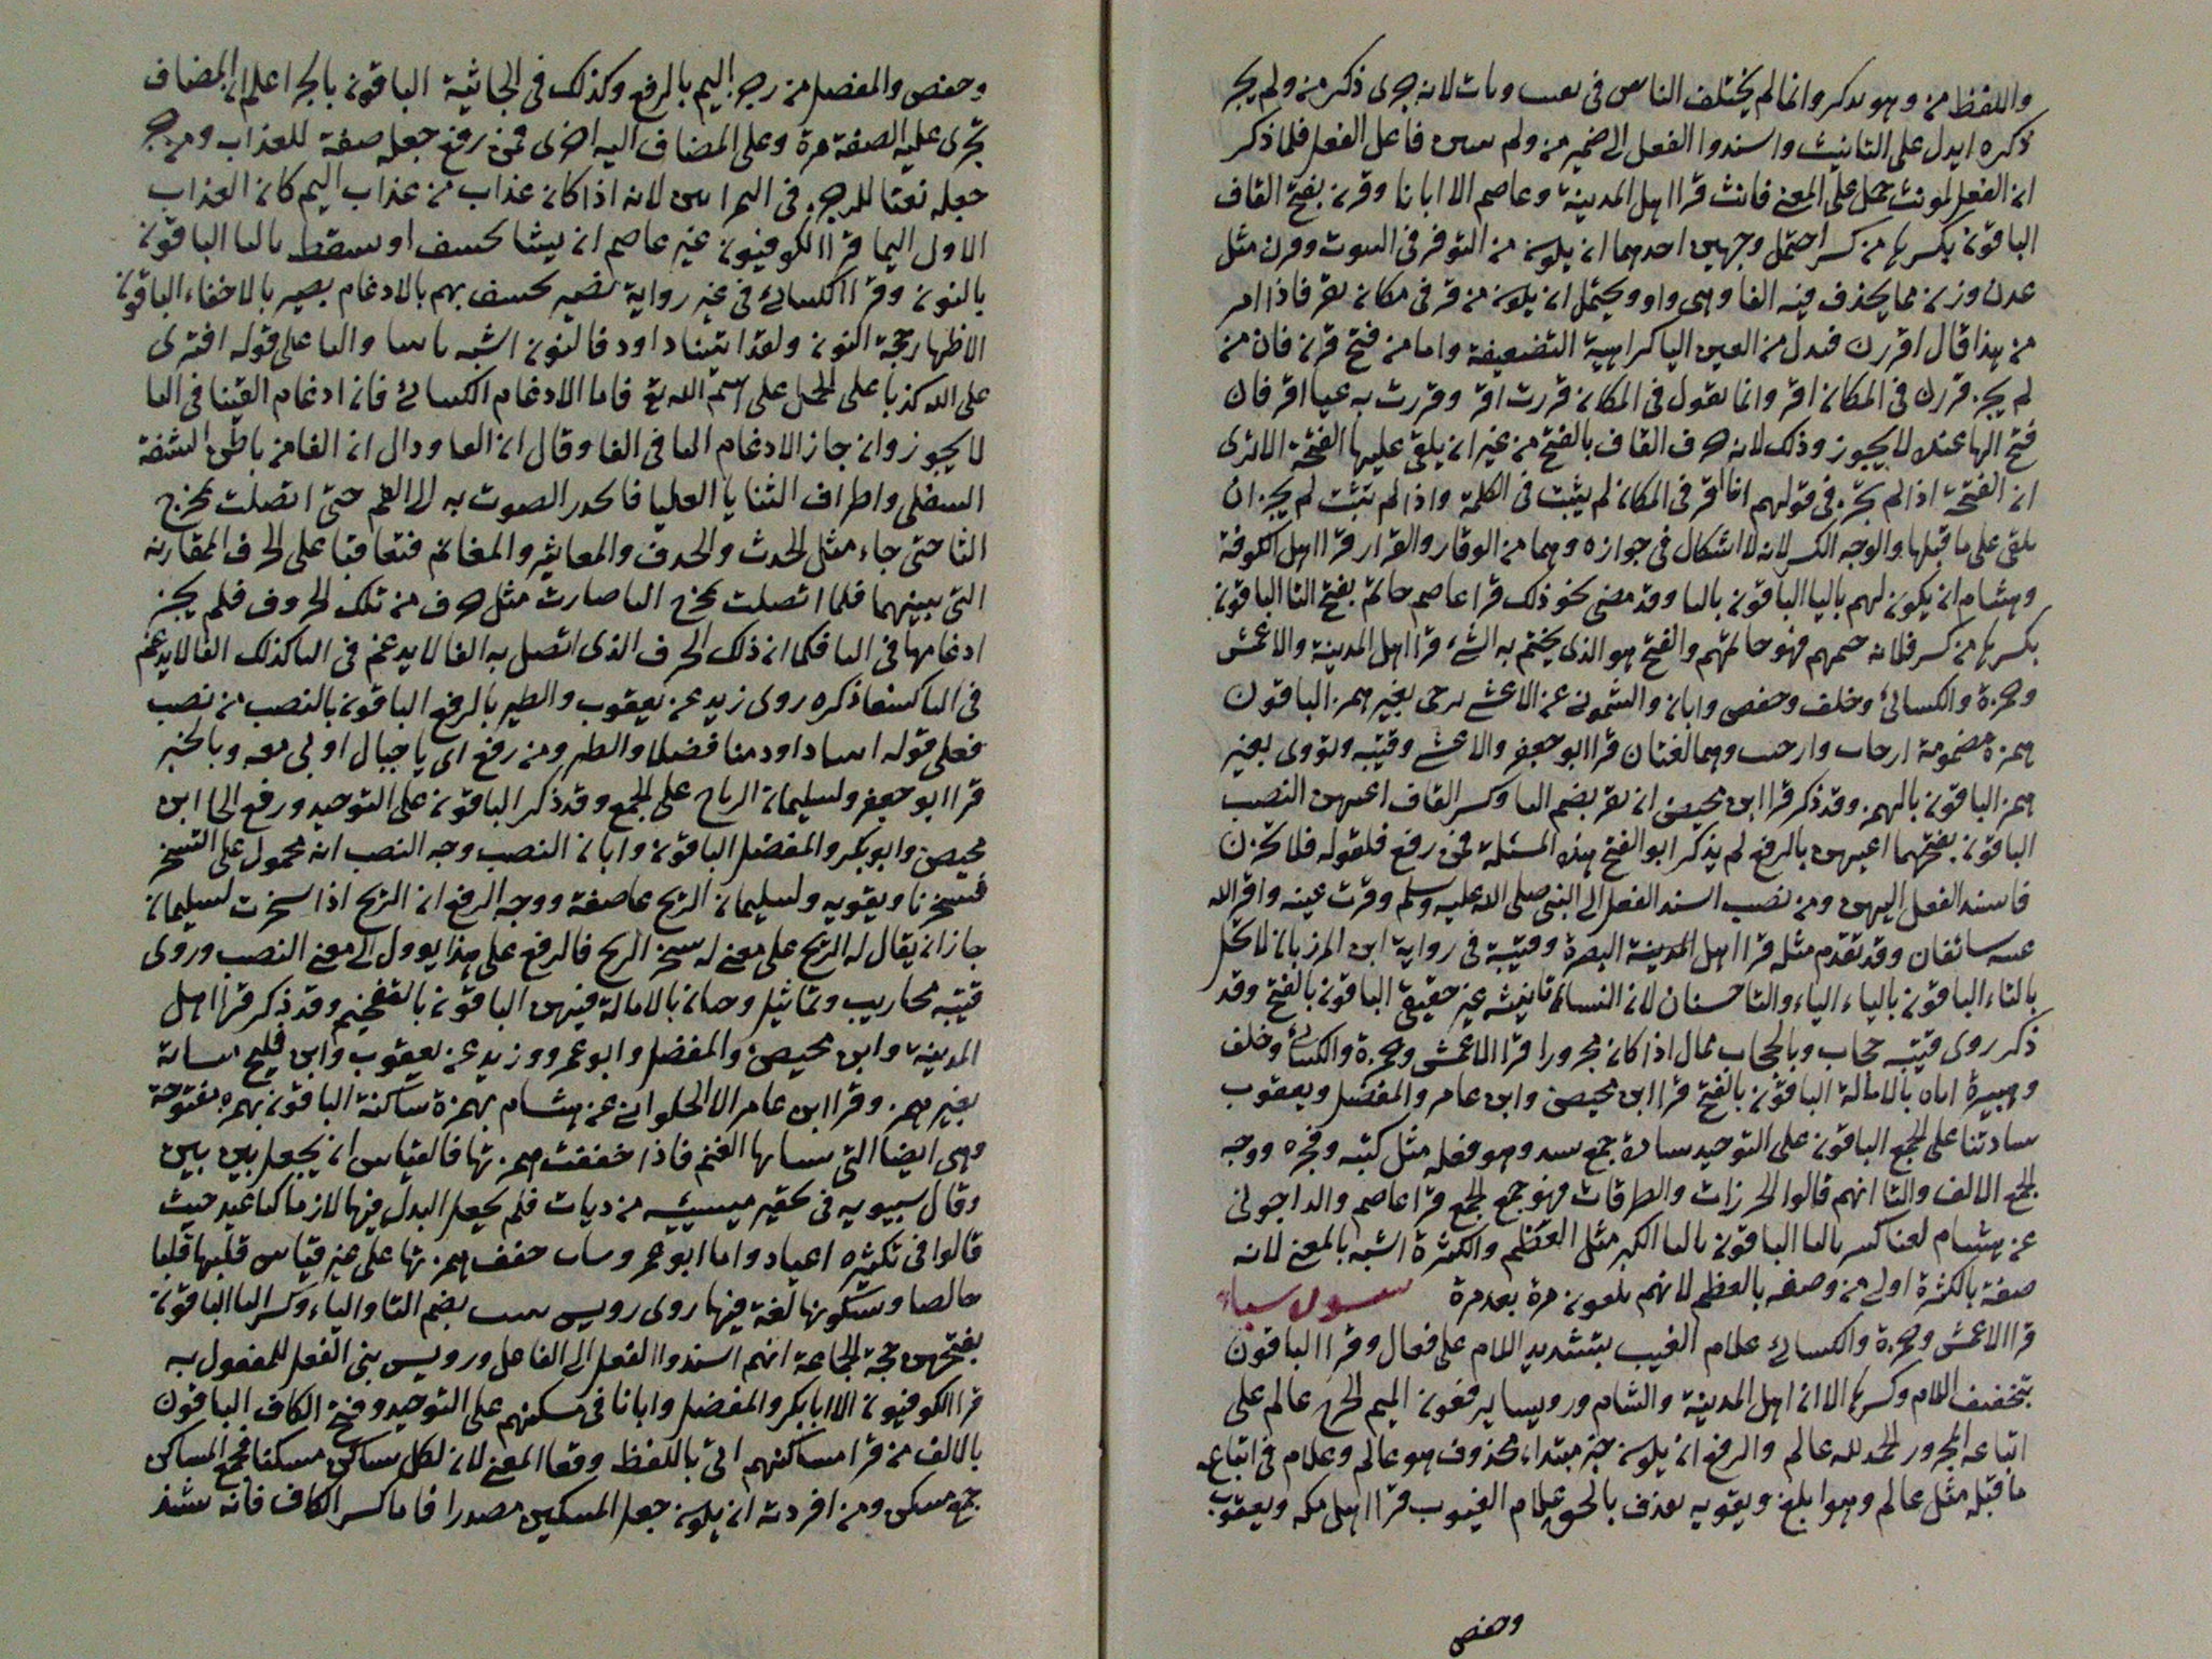 واللفظ من وهو مذكر وانما لم يختلف الناس في يقنت ويأت لانه جرى ذكر من ولم يجر
ذكره ايدل على التانيث واسندوا الفعل الى ضمير من ولم يبين فاعل الفعل فلما ذكر
ان الفعل لمونث حمل على المعنى فانث قرا اهل المدينة وعاصم الا ابانا وقرن بفتح القاف
الباقون بكسرها من كسر احتمل وجهين احدهما ان يكون من التوقر في البيوت وقرن مثل
عدن وزن مما يحذف فيه الفا وهي واو ويحتمل ان يكون من قر في مكانه يقر فاذا امر
من هذا قال اقررن فبدل من العين اليا كراهية التضعيف واما من فتح قرن فان من
لم يجز قررن في المكان اقر وانما يقول في المكان قررت اقر وقررت به عينا اقر فان
فتح الها عنده لا يجوز وذلك لانه حرف القاف بالفتح من غير ان يلقى عليها الفتحة الا ترى
ان الفتحة اذا لم تجز في قولهم انا اقر في المكان لم يثبت في الكلمة واذا لم تثبت لم يجز ان
يلقى على ما قبلها والوجه الكسر لانه لا اشكال في جوازه وهما من الوقار والقرار قرا اهل الكوفة
وهشام ان يكون لهم باليا الباقون بالتا وقد مضى نحو ذلك قرا عاصم خاتم بفتح التا الباقون
بكسرها من كسر فلانه ختمهم فهو خاتمهم والفتح هو الذي يختم به الشيء قرا اهل المدينة والاعمش
وحمزة والكسائي وخلف وحفص وابان والشموني عن الاعشى ترجى بغير همز الباقون
همزة مضمومة ارجات وارجيت وهما لغتان قرا ابو جعفر والاعشى وقتيبة وتؤوى بغير
همز الباقون بالهمز وقد ذكر قرا ابن محيصن ان تقر بضم التا وكسر القاف اعينهن النصب
الباقون بفتحهما اعينهن بالرفع لم يذكر ابو الفتح هذه المسئلة فمن رفع فلقوله فلا يحزن
فاسند الفعل اليهن ومن نصب اسند الفعل الى النبي صلى الله عليه وسلم وقرت عينه واقر الله
عينه سائغان وقد تقدم مثله قرا اهل المدينة البصرة وقتيبة في رواية ابن المرزبان لا تحل
بالتاء الباقون بالياء الياء والتا حسنان لان النساء تانيثه غير حقيقي الباقون بالفتح وقد
ذكر روى قتيبة حجاب وبالحجاب يمال اذا كان مجرورا قرا الاعمش وحمزة والكسائي وخلف
وهبيرة اناه بالامالة الباقون بالفتح قرا ابن محيصن وابن عامر والمفضل ويعقوب
ساداتنا على الجمع الباقون على التوحيد سادة جمع سيد وهو فعلة مثل كتبة وفجرة ووجه
الجمع الالف والتا انهم قالوا الجرزات والطرقات فهو جمع الجمع قرا عاصم والداجوني
عن هشام لعنا كبير بالبا الباقون بالثا الكبر مثل العظم والكثرة اشبه بالمعنى لانه
صفة بالكثرة اولى من وصفه بالعظم لانهم يلعنون مرة بعد مرة سورة سباء
قرا الاعمش وحمزة والكسائي علام الغيب بتشديد اللام على فعال وقرا الباقون
بتخفيف اللام وكسرها الا ان اهل المدينة والشام ورويسا يرفعون الميم الجر عالم على
اتباعه المجرور الحمد لله عالم والرفع ان يكون خبر مبتداء محذوف هو عالم وعلام في اتباعه
ما قبله مثل عالم وهو ابلغ ويقويه يقذف بالحق علام الغيوب قرا اهل مكة ويعقوب
وحفص
وحفص والمفضل من رجز اليم بالرفع وكذلك في الجاثية الباقون بالجر اعلم ان المضاف
تجرى عليه الصفة مرة وعلى المضاف اليه اخرى فمن رفع جعله صفة للعذاب ومن جر
جعله نعتا للرجز في اليم ابين لانه اذا كان عذاب من عذاب اليم كان العذاب
الاول اليما قرا الكوفيون غير عاصم ان يشا يخسف او يسقط باليا الباقون
بالنون وقرا الكسائي في غير رواية نصير يخسف بهم بالادغام بصير بالاخفاء الباقون
الاظهار حجة النون ولقد اتينا داود فالنون اشبه باتينا واليا على قوله افترى
على الله كذبا على الحمل على اسم الله تع فاما الادغام الكسائي فان ادغام الفينا في البا
لا يجوز وان جاز الادغام البا في الفا وقال ان الفا ودال ان الفا من باطن الشفة
السفلى واطراف الثنايا العليا فانحدر الصوت به الى الفم حتى اتصلت بمخرج
الثا حتى جاء مثل الحدث والحدف والمعاثير والمغافير فتعاقبا على الحرف المقاربة
التي بينهما فلما اتصلت بمخرج الثا صارت مثل حرف من تلك الحروف فلم يجز
ادغامها في البا فكما ان ذلك الحرف الذي اتصل به الفا لا يدغم في البا كذلك الفا لا يدغم
في البا كسفا ذكره روى زيد عن يعقوب والطير بالرفع الباقون بالنصب من نصب
فعلى قوله اتينا داود منا فضلا والطير ومن رفع اي يا جبال اوبي معه وبالخبر
قرا ابو جعفر ولسليمان الرياح على الجمع وقد ذكر الباقون على التوحيد ورفع الحا ابن
محيصن وابو بكر والمفضل الباقون وابان النصب وجه النصب انه محمول على التسخير
فسخرنا ويقويه ولسليمان الريح عاصفة ووجه الرفع ان الريح اذا سخرت لسليمان
جاز ان يقال له الريح على معنى له سخر الريح فالرفع على هذا يوول الى معنى النصب وروى
قتيبة محاريب وتماثيل وجفان بالامالة فيهن الباقون بالتفخيم وقد ذكر قرا اهل
المدينة وابن محيصن والمفضل وابو عمرو وزيد عن يعقوب وابن فليح منساته
بغير همز وقرا ابن عامر الا الحلواني عن هشام بهمزة ساكنة الباقون بهمزة مفتوحة
وهي ايضا التي ينسا بها الغنم فاذا خففت همزتها فالقياس ان يجعل بين بين
وقال سيبويه في تحقير ميسيئة من ديات فلم يجعل البدل فيها لازما كيا عيد حيث
قالوا في تكثيره اعياد واما ابو عمرو وساب خفف همزتها على غير قياس قلبها قلبا
خالصا وسكونها لغة فيها روى رويس تبينت بضم التا والياء وكسر اليا الباقون
بفتحهن حجة الجماعة انهم اسندوا الفعل الى الفاعل ورويس بنى الفعل للمفعول به
قرا الكوفيون الا ابا بكر والمفضل وابانا في مسكنهم على التوحيد وفتح الكاف الباقون
بالالف من قرا مساكنهم اتى باللفظ وقفا المعنى لان لكل ساكن مسكنا فجمع المساكن
جمع مسكن ومن افرد يشبه ان يكون جعل المسكين مصدرا فاما كسر الكاف فانه شذ